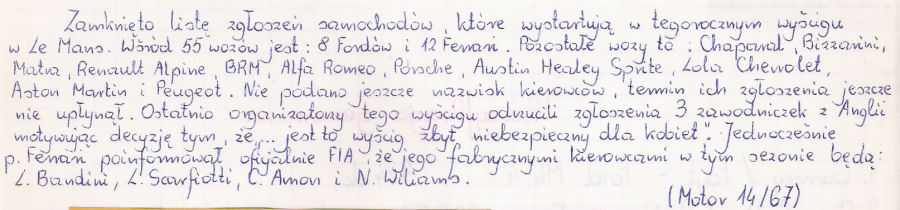 Zamknięto listę zgłoszeń samochodów, które wystartują w tegorocznym wyścigu
w Le Mans. Wśród 55 wozów jest: 8 Fordów i 12 Ferrari. Pozostałe wozy to: Chaparral, Bizzarini,
Matra, Renault Alpine, BRM, Alfa Romeo, Porsche, Austin Healey Sprite, Lola Chevrolet,
Aston Martin i Peugeot. Nie podano jeszcze nazwisk kierowców, termin ich zgłoszenia jeszcze
nie upłynął. Ostatnio organizatorzy tego wyścigu odrzucili zgłoszenia 3 zawodniczek z Anglii
motywując decyzję tym, że „... jest to wyścig zbyt niebezpieczny dla kobiet”. Jednocześnie
p. Ferrari poinformował oficjalnie FIA, że jego fabrycznymi kierowcami w tym sezonie będą:
L. Bandini, L. Scarfiotti, C. Amon i N. Wiliams.
(Motor 14/67)